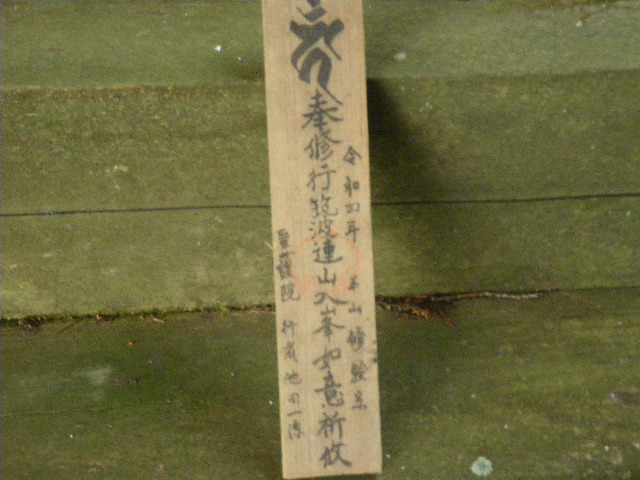 奉修行筑波連山入峯如意祈攸
令和四年 本山修験宗
聖護院 行者 池田一